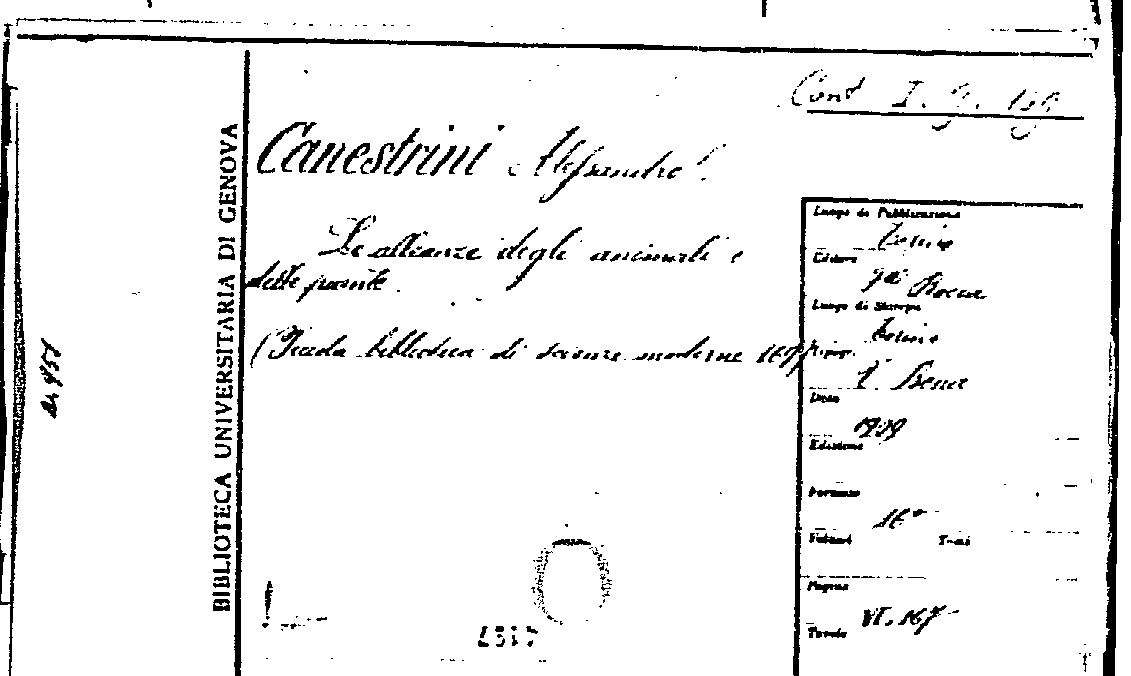 Cont I. g.
Canestrini Alessandro
Le alleanze degli animali e
delle piante.
(Piccola biblioteca di scienze moderne 167)
BIBLIOTECA UNIVERSITARIA DI GENOVA
Luogo di Pubblicazione
Torino
Editore
Bocca
Luogo di Stampa
Torino
Tipogr.
Data
1909
Edizione
Formato
16°
Volumi Tomi
Pagine
VI. 167
Tavole